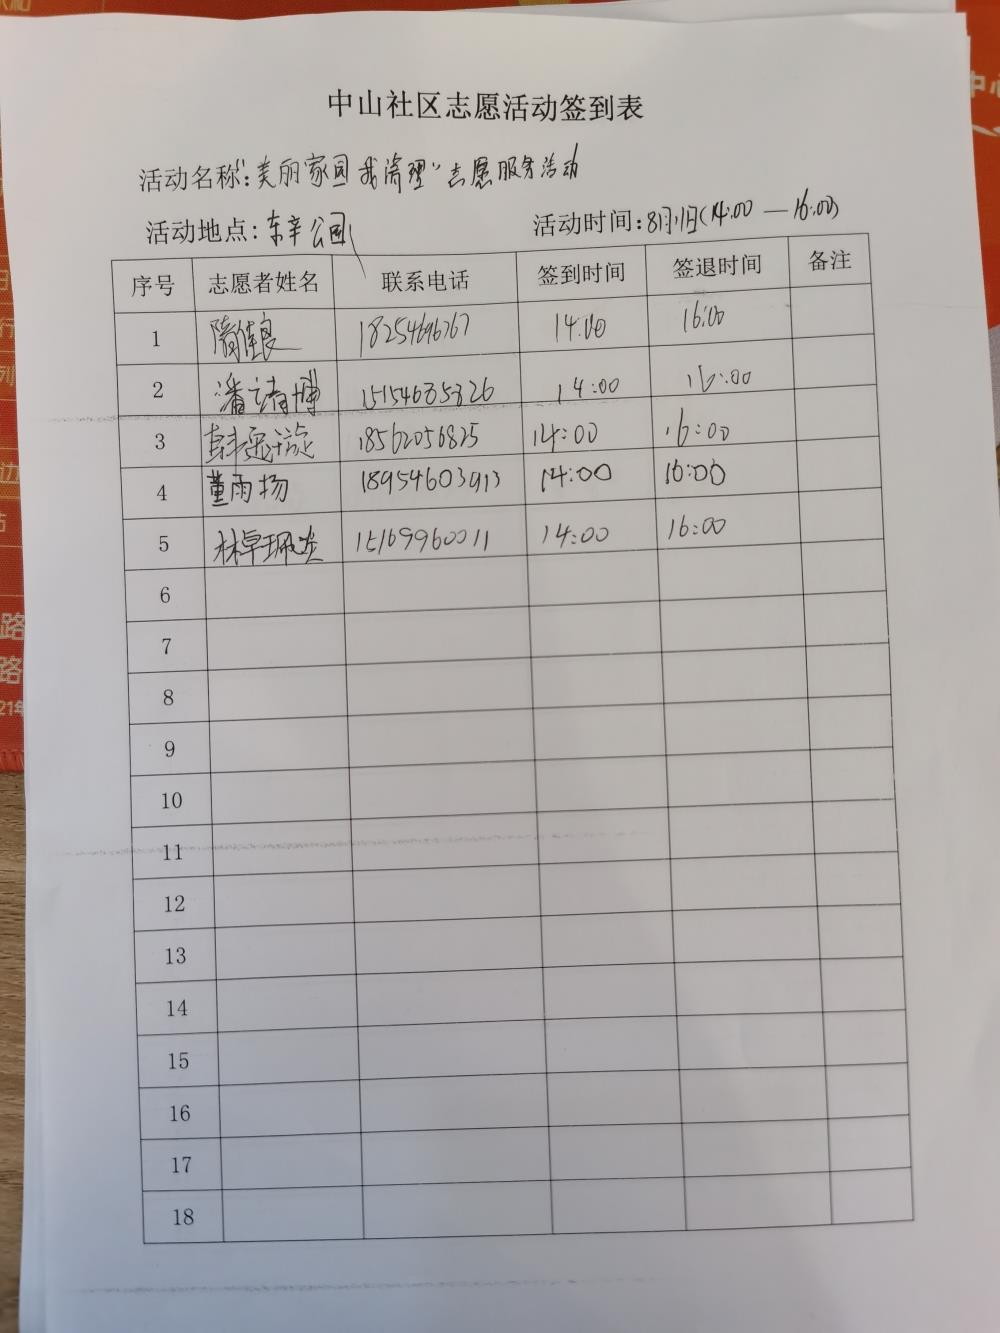 中山社区志愿活动签到表
活动名称:"美丽家园 我清理"志愿服务活动
活动地点: 东辛公园 活动时间:8月1日(14:00 — 16:00)
序号 志愿者姓名 联系电话 签到时间 签退时间 备注
1 隋佳良 18254696767 14:00 16:00
2 潘靖博 15154685826 14:00 16:00
3 18562056825 14:00 16:00
4 董雨扬 18954603913 14:00 16:00
5 15169960011 14:00 16:00
6
7
8
9
10
11
12
13
14
15
16
17
18
路
路
21年
中心